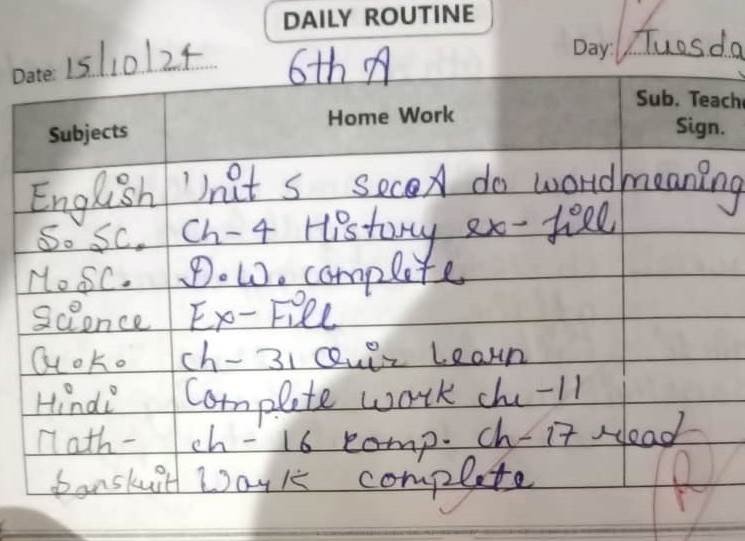 DAILY ROUTINE
Date: 15/10/24 6th A Day: Tuesda
Subjects Home Work Sub. Teache Sign.
English Unit 5 sec A do word meaning
S. SC. Ch-4 History ex- fill
M. SC. D.W. complete
Science Ex- Fill
G.K. ch- 31 Quiz Learn
Hindi Complete work ch -11
Math- ch - 16 comp. Ch-17 read
Sanskrit Work complete